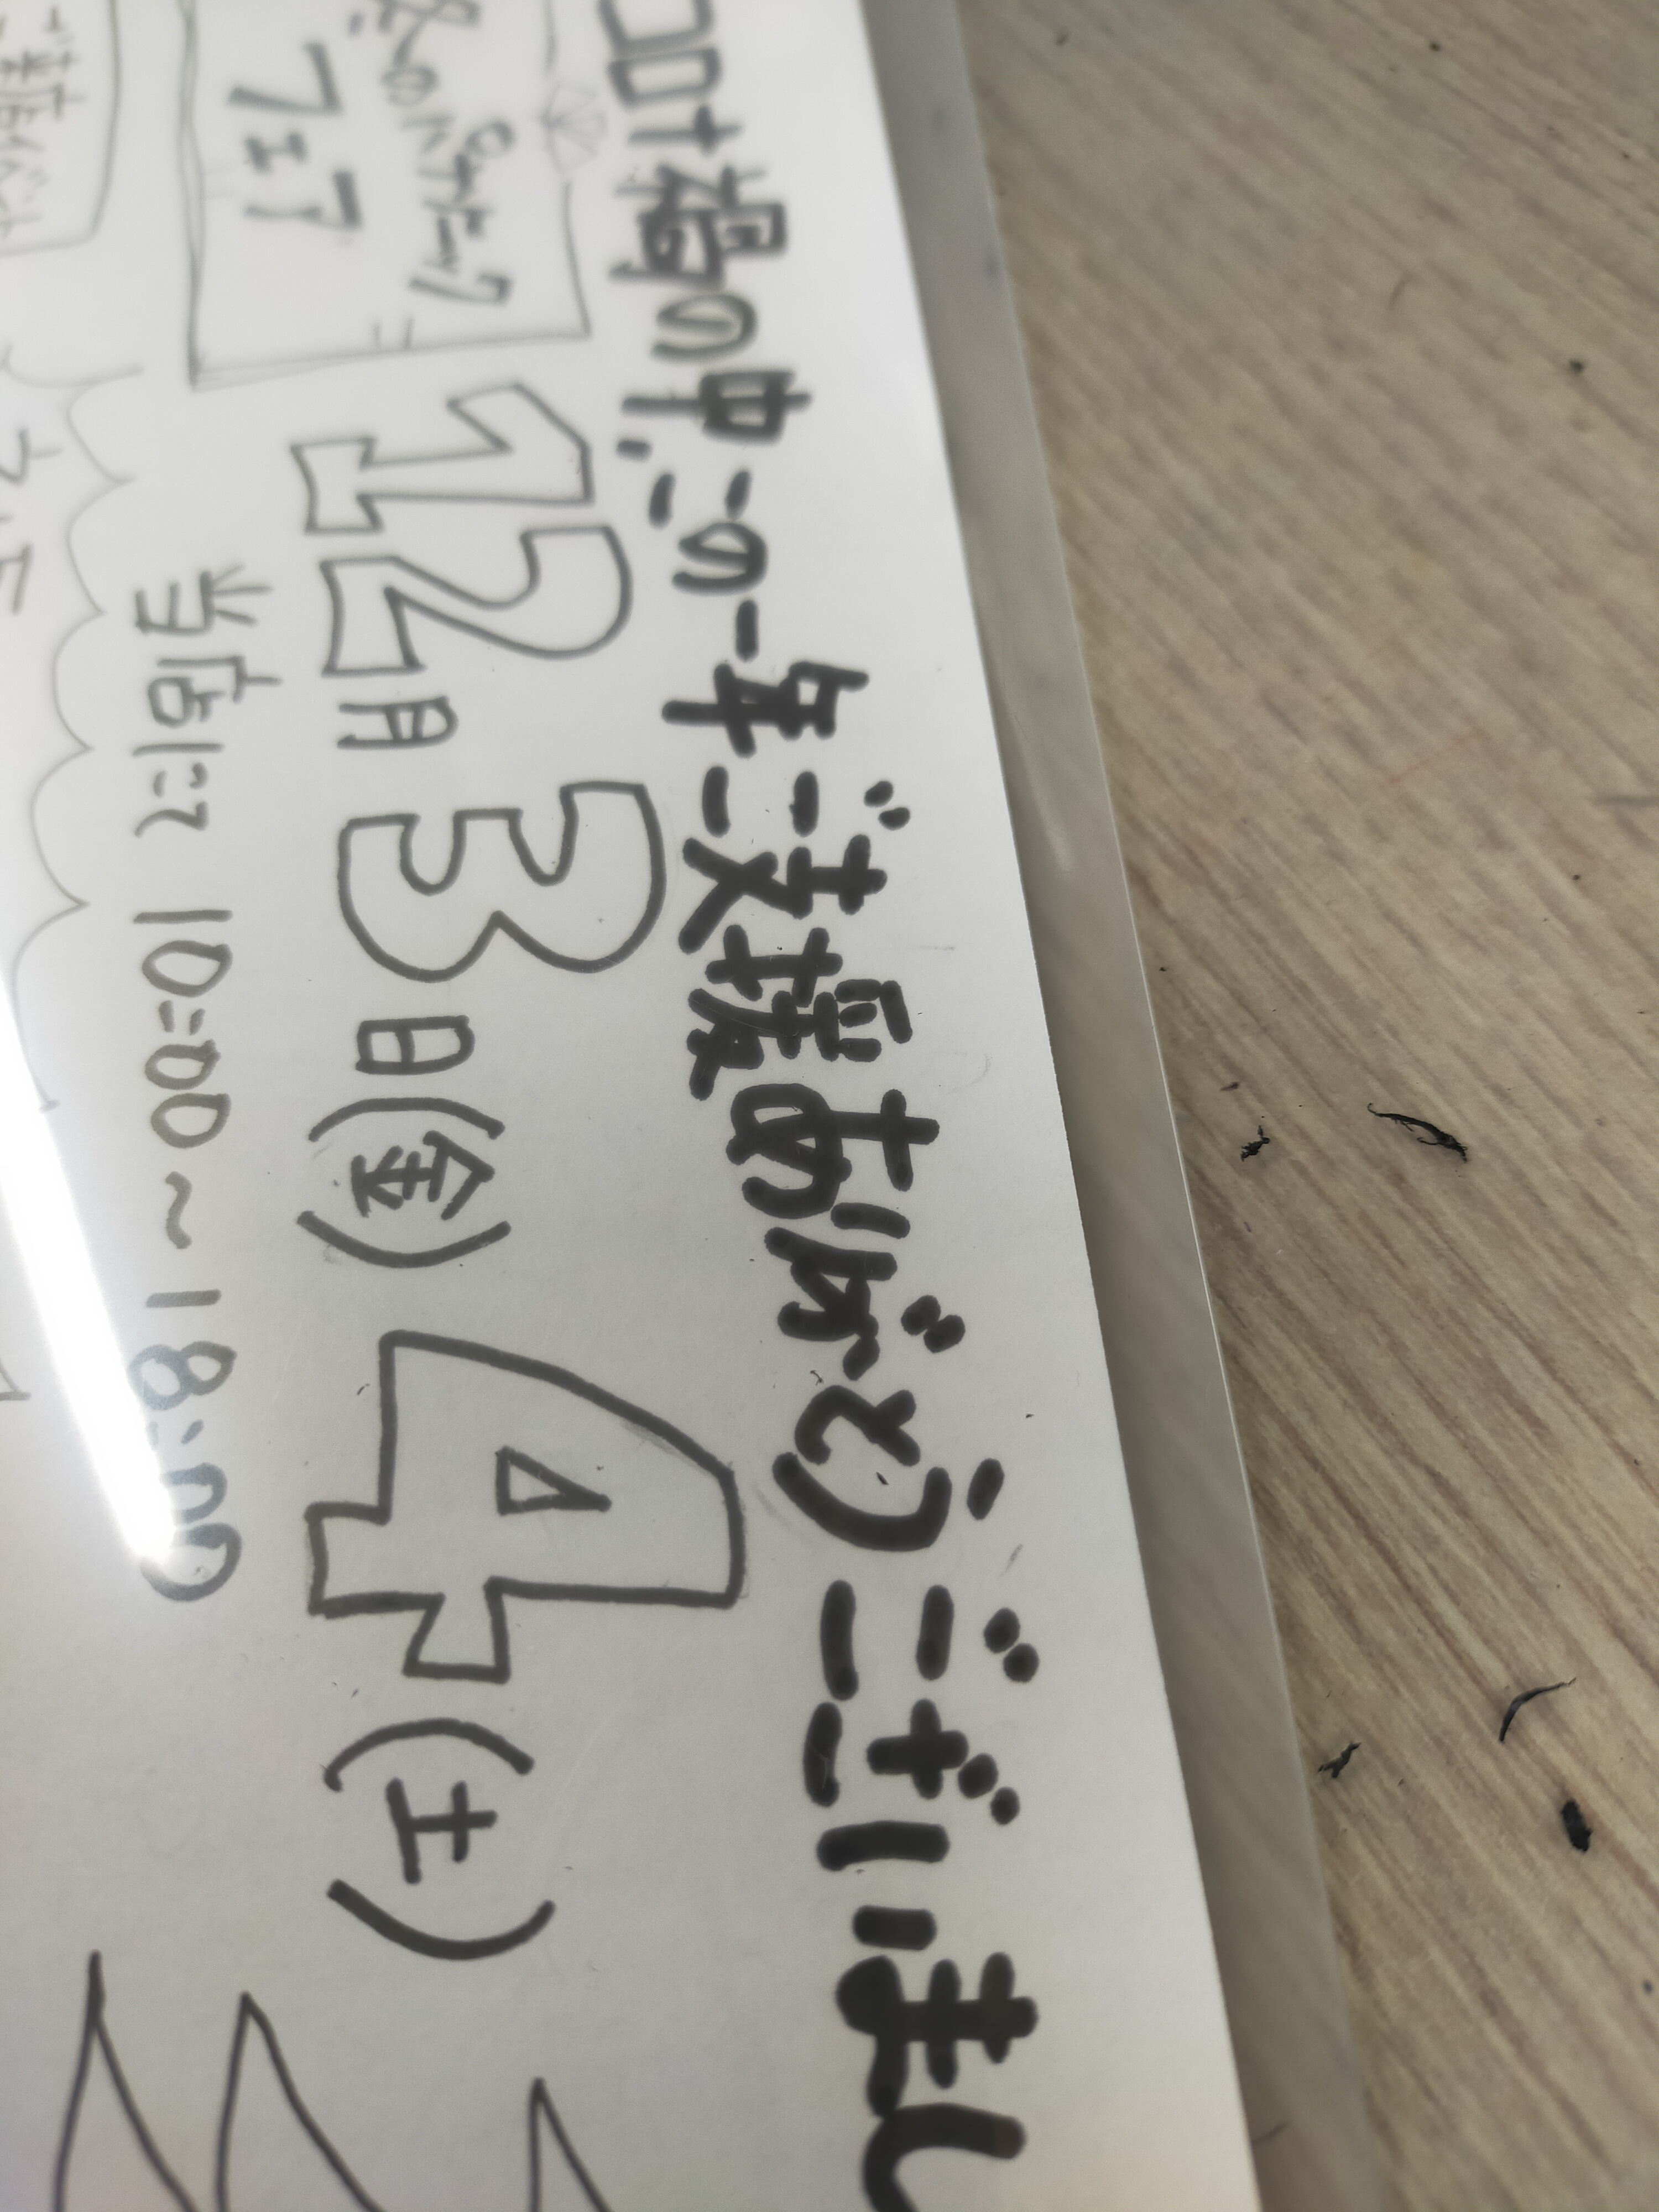 コロナ禍の中、この一年ご支援ありがとうございまし
12月3日(金)4(土)
当店にて 10:00～18:00
冬のパナソニック
フェア